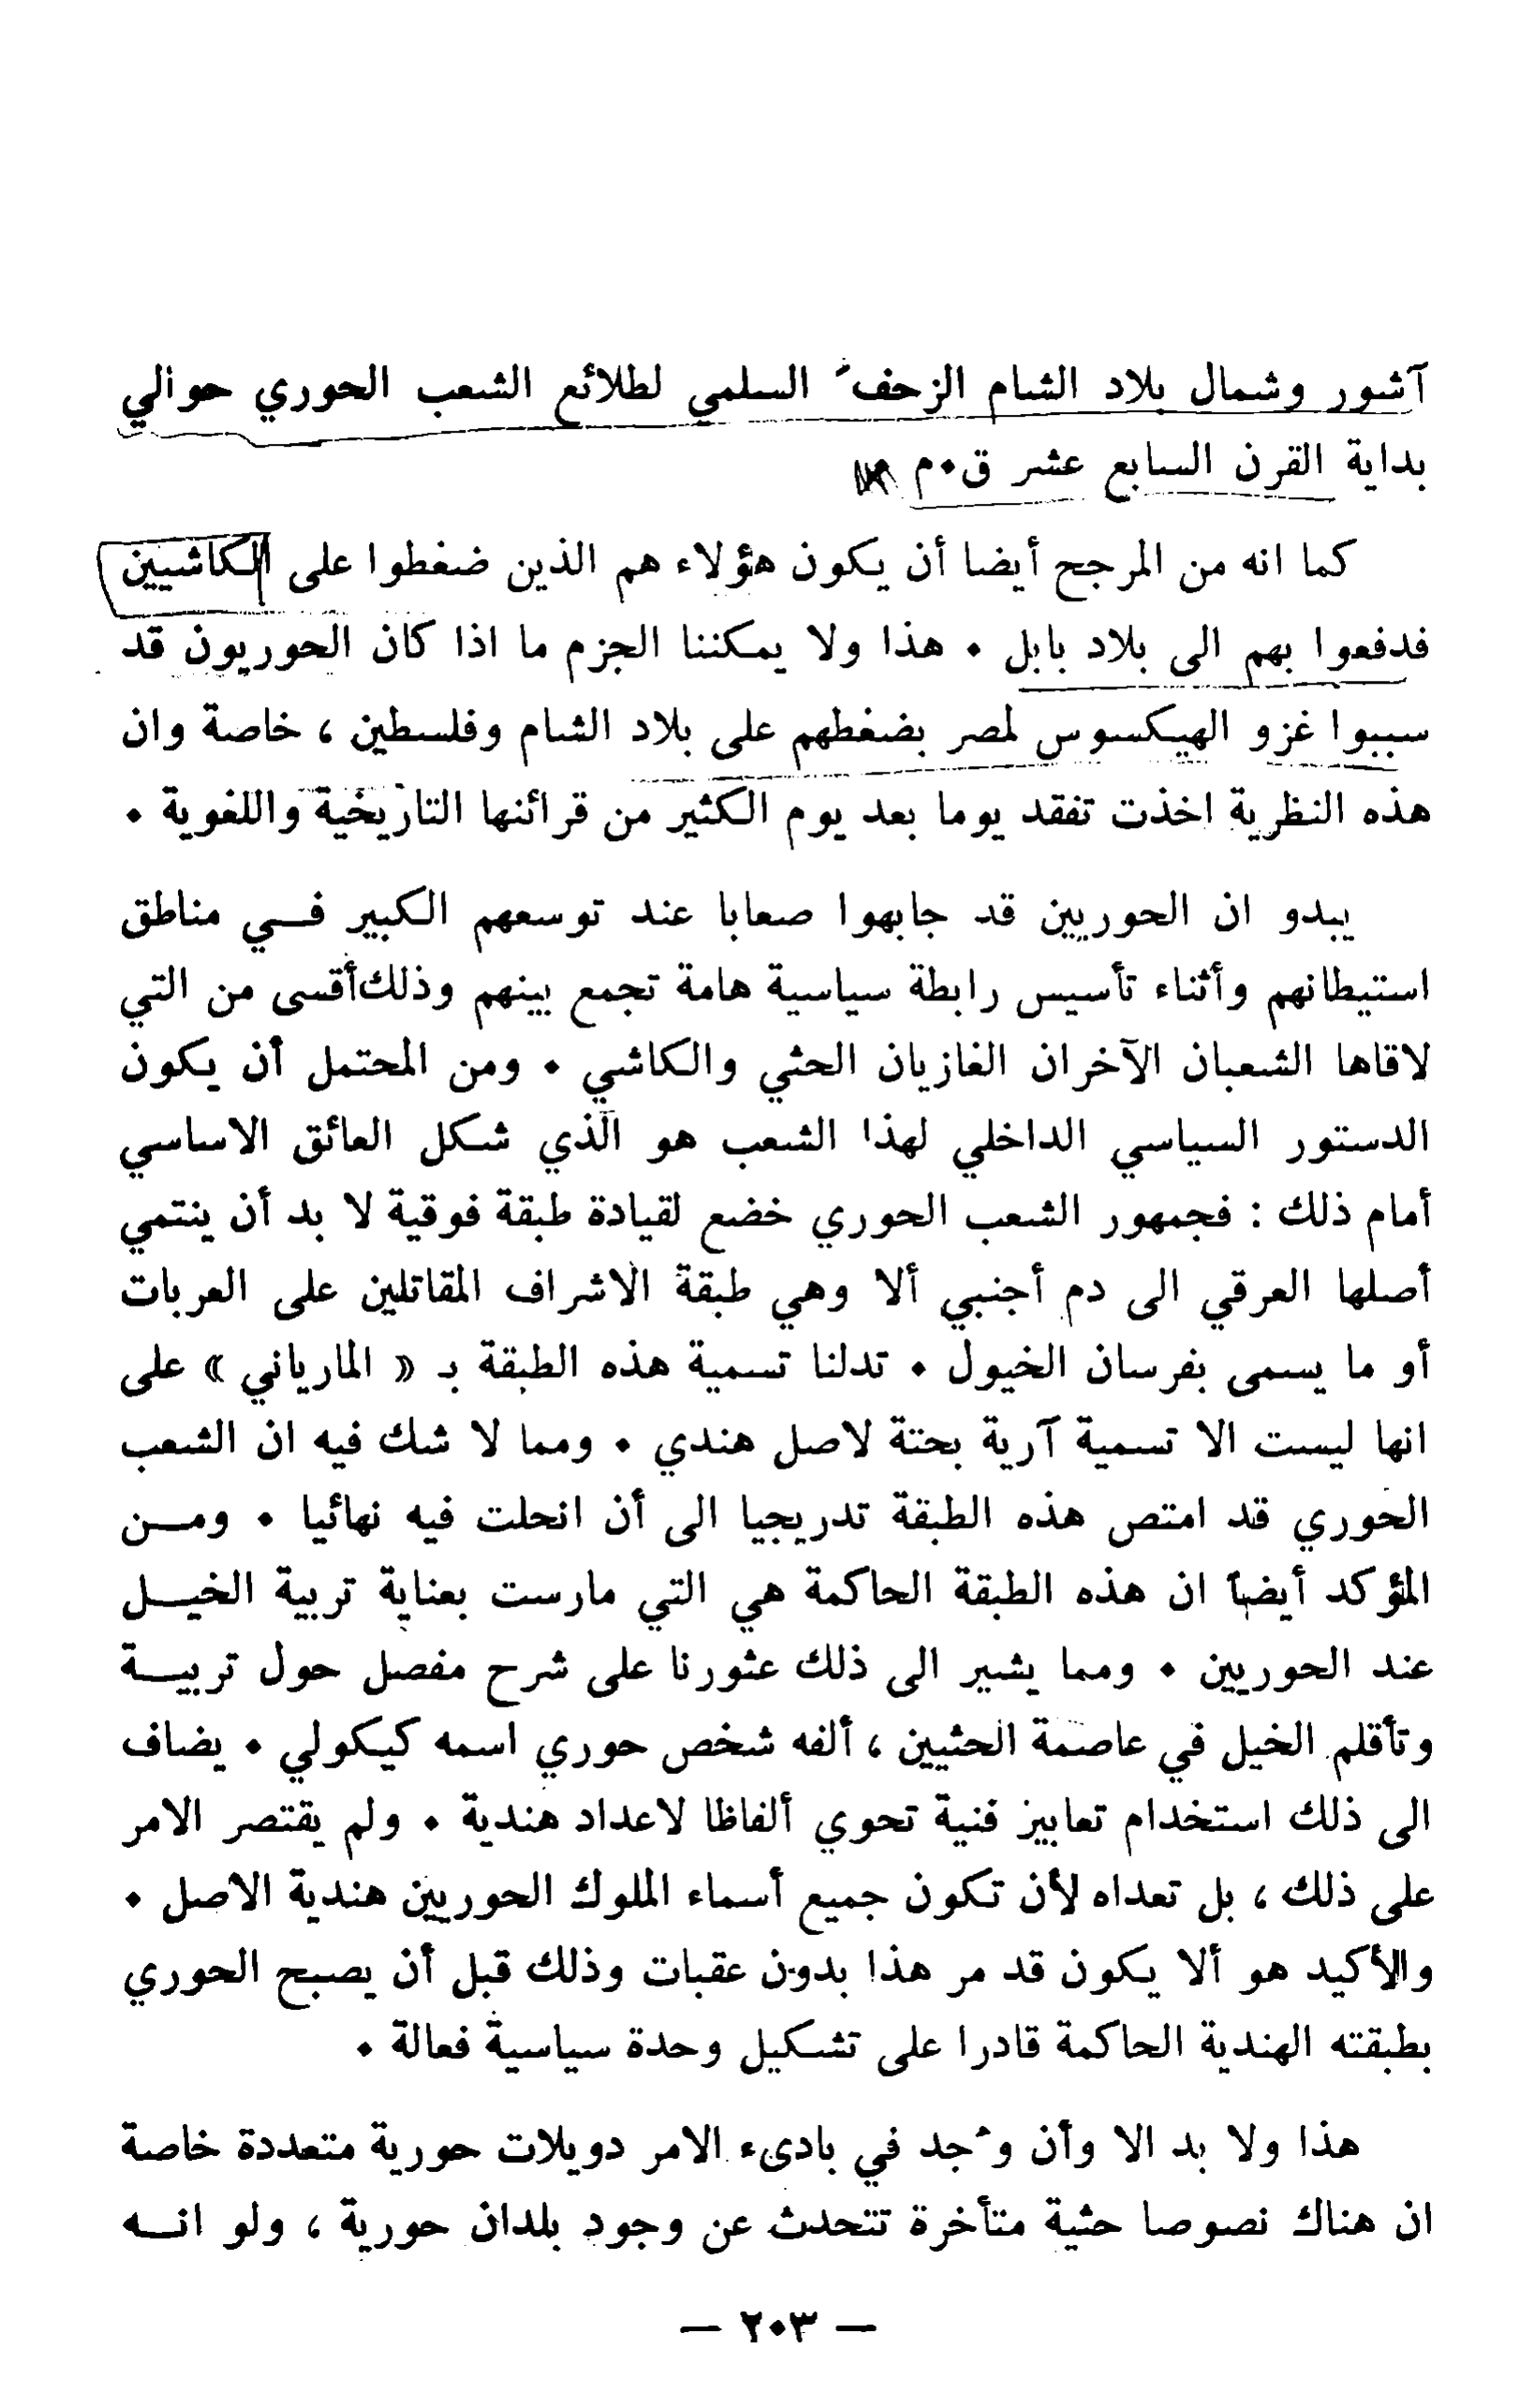 آشور وشمال بلاد الشام الزحفُ السلمي لطلائع الشعب الحوري حوالي
بداية القرن السابع عشر ق٠م
كما انه من المرجح أيضا أن يكون هؤلاء هم الذين ضغطوا على الكاشيين
فدفعوا بهم الى بلاد بابل ٠ هذا ولا يمكننا الجزم ما اذا كان الحوريون قد
سببوا غزو الهيكسوس لمصر بضغطهم على بلاد الشام وفلسطين ، خاصة وان
هذه النظرية اخذت تفقد يوما بعد يوم الكثير من قرائنها التاريخية واللغوية ٠
يبدو ان الحوريين قد جابهوا صعابا عند توسعهم الكبير فــي مناطق
استيطانهم وأثناء تأسيس رابطة سياسية هامة تجمع بينهم وذلك أقسى من التي
لاقاها الشعبان الآخران الغازيان الحثي والكاشي ٠ ومن المحتمل أن يكون
الدستور السياسي الداخلي لهذا الشعب هو الذي شكل العائق الاساسي
أمام ذلك : فجمهور الشعب الحوري خضع لقيادة طبقة فوقية لا بد أن ينتمي
أصلها العرقي الى دم أجنبي ألا وهي طبقة الاشراف المقاتلين على العربات
أو ما يسمى بفرسان الخيول ٠ تدلنا تسمية هذه الطبقة بـ « المارياني » على
انها ليست الا تسمية آرية بحتة لاصل هندي ٠ ومما لا شك فيه ان الشعب
الحوري قد امتص هذه الطبقة تدريجيا الى أن انحلت فيه نهائيا ٠ ومــن
المؤكد أيضاً ان هذه الطبقة الحاكمة هي التي مارست بعناية تربية الخيــل
عند الحوريين ٠ ومما يشير الى ذلك عثورنا على شرح مفصل حول تربيــة
وتأقلم الخيل في عاصمة الحثيين ، ألفه شخص حوري اسمه كيكولي ٠ يضاف
الى ذلك استخدام تعابير فنية تحوي ألفاظا لاعداد هندية ٠ ولم يقتصر الامر
على ذلك ، بل تعداه لأن تكون جميع أسماء الملوك الحوريين هندية الاصل ٠
والأكيد هو ألا يكون قد مر هذا بدون عقبات وذلك قبل أن يصبح الحوري
بطبقته الهندية الحاكمة قادرا على تشكيل وحدة سياسية فعالة ٠
هذا ولا بد الا وأن وُجد في بادىء الامر دويلات حورية متعددة خاصة
ان هناك نصوصا حثية متأخرة تتحدث عن وجود بلدان حورية ، ولو انــه
— ٢٠٣ —